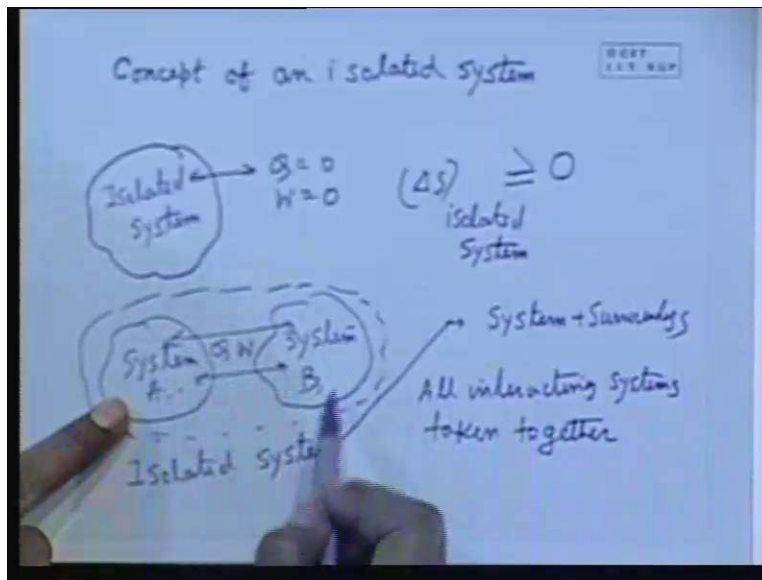 Concept of an isolated system
I.I.T. KGP
Isolated
System
Q = 0
W = 0
(ΔS) ≥ 0
isolated
System
System
A
Q W
System
B
Isolated System
System + Surroundings
All interacting systems
taken together